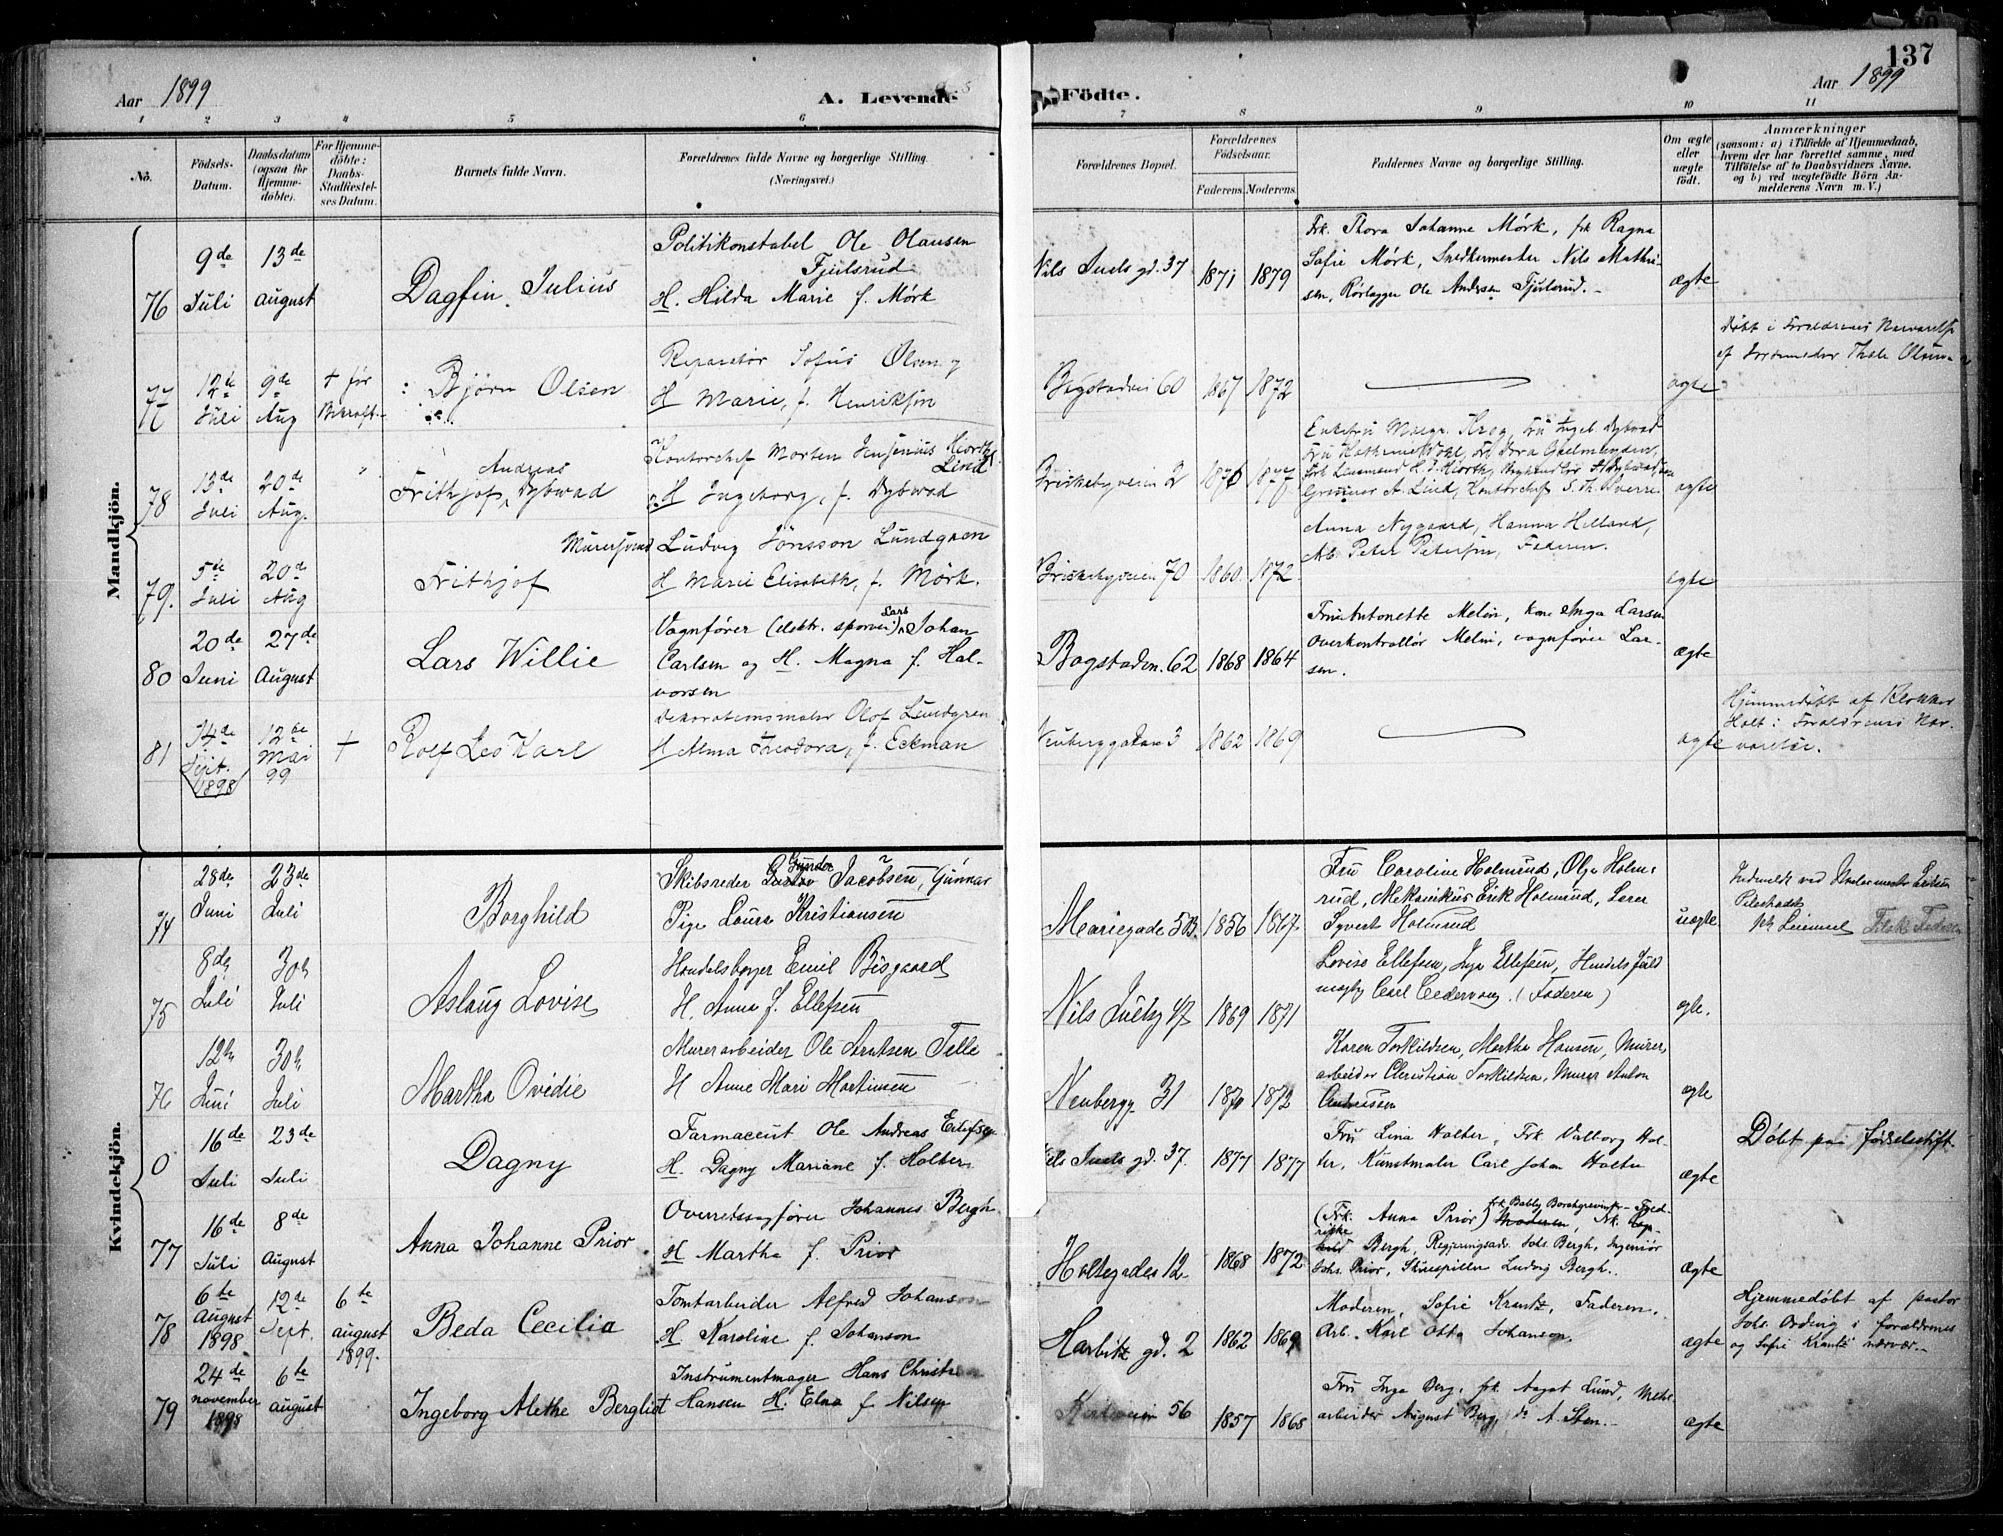 137
Aar 1899
A. Levende
Födte.
Aar 1899
1 2 3 4 5 6 7 8 9 10 11
No.
Födsels-Datum.
Daabsdatum (ogsaa for Hjemme-döbte).
For Hjemme-döbte: Daabs-Stadfæstelses Datum.
Barnets fulde Navn.
Forældrenes fulde Navne og borgerlige Stilling.
(Næringsvei.)
Forældrenes Bopæl.
Forældrenes Födselsaar.
Faderens. Moderens.
Faddernes Navne og borgerlige Stilling.
Om ægte eller uægte födt.
Anmærkninger
(saasom: a) i Tilfælde af Hjemmedaab, hvem der har forrettet samme, med Tilföielse af to Daabsvidners Navne, og b) ved uægtefödte Börn Anmelderens Navn m. V.)
Mandkjön.
76
9de Juli
13de August
Dagfin Julius
Politikonstabel Ole Olausen
Fjeilsrud
H. Hilda Marie f. Mørk
Nils Juels gd. 37
1871 1879
Frk. Thora Johanne Mørk, frk Ragna
Sofie Mørk, Snedkermester Nils Mathi-
sen, Rørlægger Ole Andersen Fjeilsrud.
ægte
77
12te Juli
9de Aug
+ før Bekræft.
Bjørn Olsen
Reparatør Sofus Olsen og
H Marie, f. Henriksen
Bogstadvei 60
1867 1872
ægte
Døbt i Forældrenes Nærværelse
af Jordemoder Thale Olsen
78
13de Juli
20de Aug.
Andreas
Frithjof Dybwad
Kontorchef Morten Jensenius Hiorth
Lind
H Ingeborg, f. Dybwad
Briskebyveien 2
1870 1877
ægte
79.
5te Juli
20de Aug
Frithjof
Murersvend Ludvig Jönsson Lundgren
H Marie Elisabeth, f. Mörk.
Briskebyveien 70
1860 1872
Anna Nygaard, Hanna Helland,
Arb. Peter Petersen, Faderen.
ægte
80
20de Juni
27de August
Lars Willie
Vognfører (elektr. sporvei) Lars Johan
Carlsen og H. Magna f. Hal-
vorsen
Bogstadvn. 62
1868 1864
Fru Antonette Melin, kone Inga Larsen
Overkontrollør Melin, vognfører Lar-
sen.
ægte
81
14de Sept. 1898
12te Mai 99
+
Rolf Leo Karl
Dekorationsmaler Olof Lundgren
H Alma Theodora, f. Eckman
Neuberggaden 3
1862 1869
ægte
Hjemmedøbt af Klokker
Holt i Forældrenes Nær-
værelse.
Kvindekjön.
74
28de Juni
23de Juli
Borghild
Skibsreder Gunder Jacobsen, Gunnar
Pige Laura Kristiansen
Mariegade 5B.
1856 1867
Fru Caroline Holmrud, Olga Holm-
rud, Mekanikus Erik Holmrud, Lærer
Syvert Holmrud
uægte
75
8de Juli
30te Juli
Aslaug Lovise
Handelsborger Emil Bisgaard
H. Anna f. Ellefsen
Nils Juelsg 47
1869 1871
Lovise Ellefsen, Inga Ellefsen, Handelsfuld
mægtg Carl Cedervang. (Faderen)
ægte.
76
12te Juni
30te Juli
Martha Ovidie
Murerarbeider Ole Arntsen Telle
H Anne Mari Martinsen
Neubergg 31
1870 1872
Karen Torkildsen, Martha Hansen, Murer
arbeider Christian Torkildsen, Murer Anton
Andreassen
ægte
0
16de Juli
23de Juli
Dagny
Farmaceut Ole Andreas Ellefsen
H. Dagny Mariane f. Holter
Nils Juels gd. 37.
1877 1877
Fru Lina Holter, Frk Valborg Hol-
ter, Kunstmaler Carl Johan Holter
ægte
Døbt paa fødselsstift.
77
16de Juli
8de August
Anna Johanne Prior
Overretssagfører Johannes Bergh
H Martha f. Prior
Holtegaden 12
1868 1872
(Frk. Anna Prior)
Bergh, Regjeringsadv. Johs. Bergh, Ingeniør
Johs. Prior, Skuespiller Ludvig Bergh.
ægte
78
6te August 1898.
12te Sept.
6te august 1899.
Beda Cecilia
Tomtarbeider Alfred Johanson
H Karoline f. Johanson
Harbitz gd. 2
1862 1869
Moderen, Sofie Krantz, Faderen.
Arb. Karl Otto Johanson.
ægte
Hjemmedøbt af pastor
Johs. Ording i forældrenes
og Sofie Krantz nærvær.
79
24de november 1898
6te august
Ingeborg Alethe Bergliot
Instrumentmager Hans Christian
Hansen H. Elna f Nilsen
56
1857 1868
Fru Inga Berg, frk. Aagot Lund, Mek.
arbeider August Berg, do A. Sten.
ægte